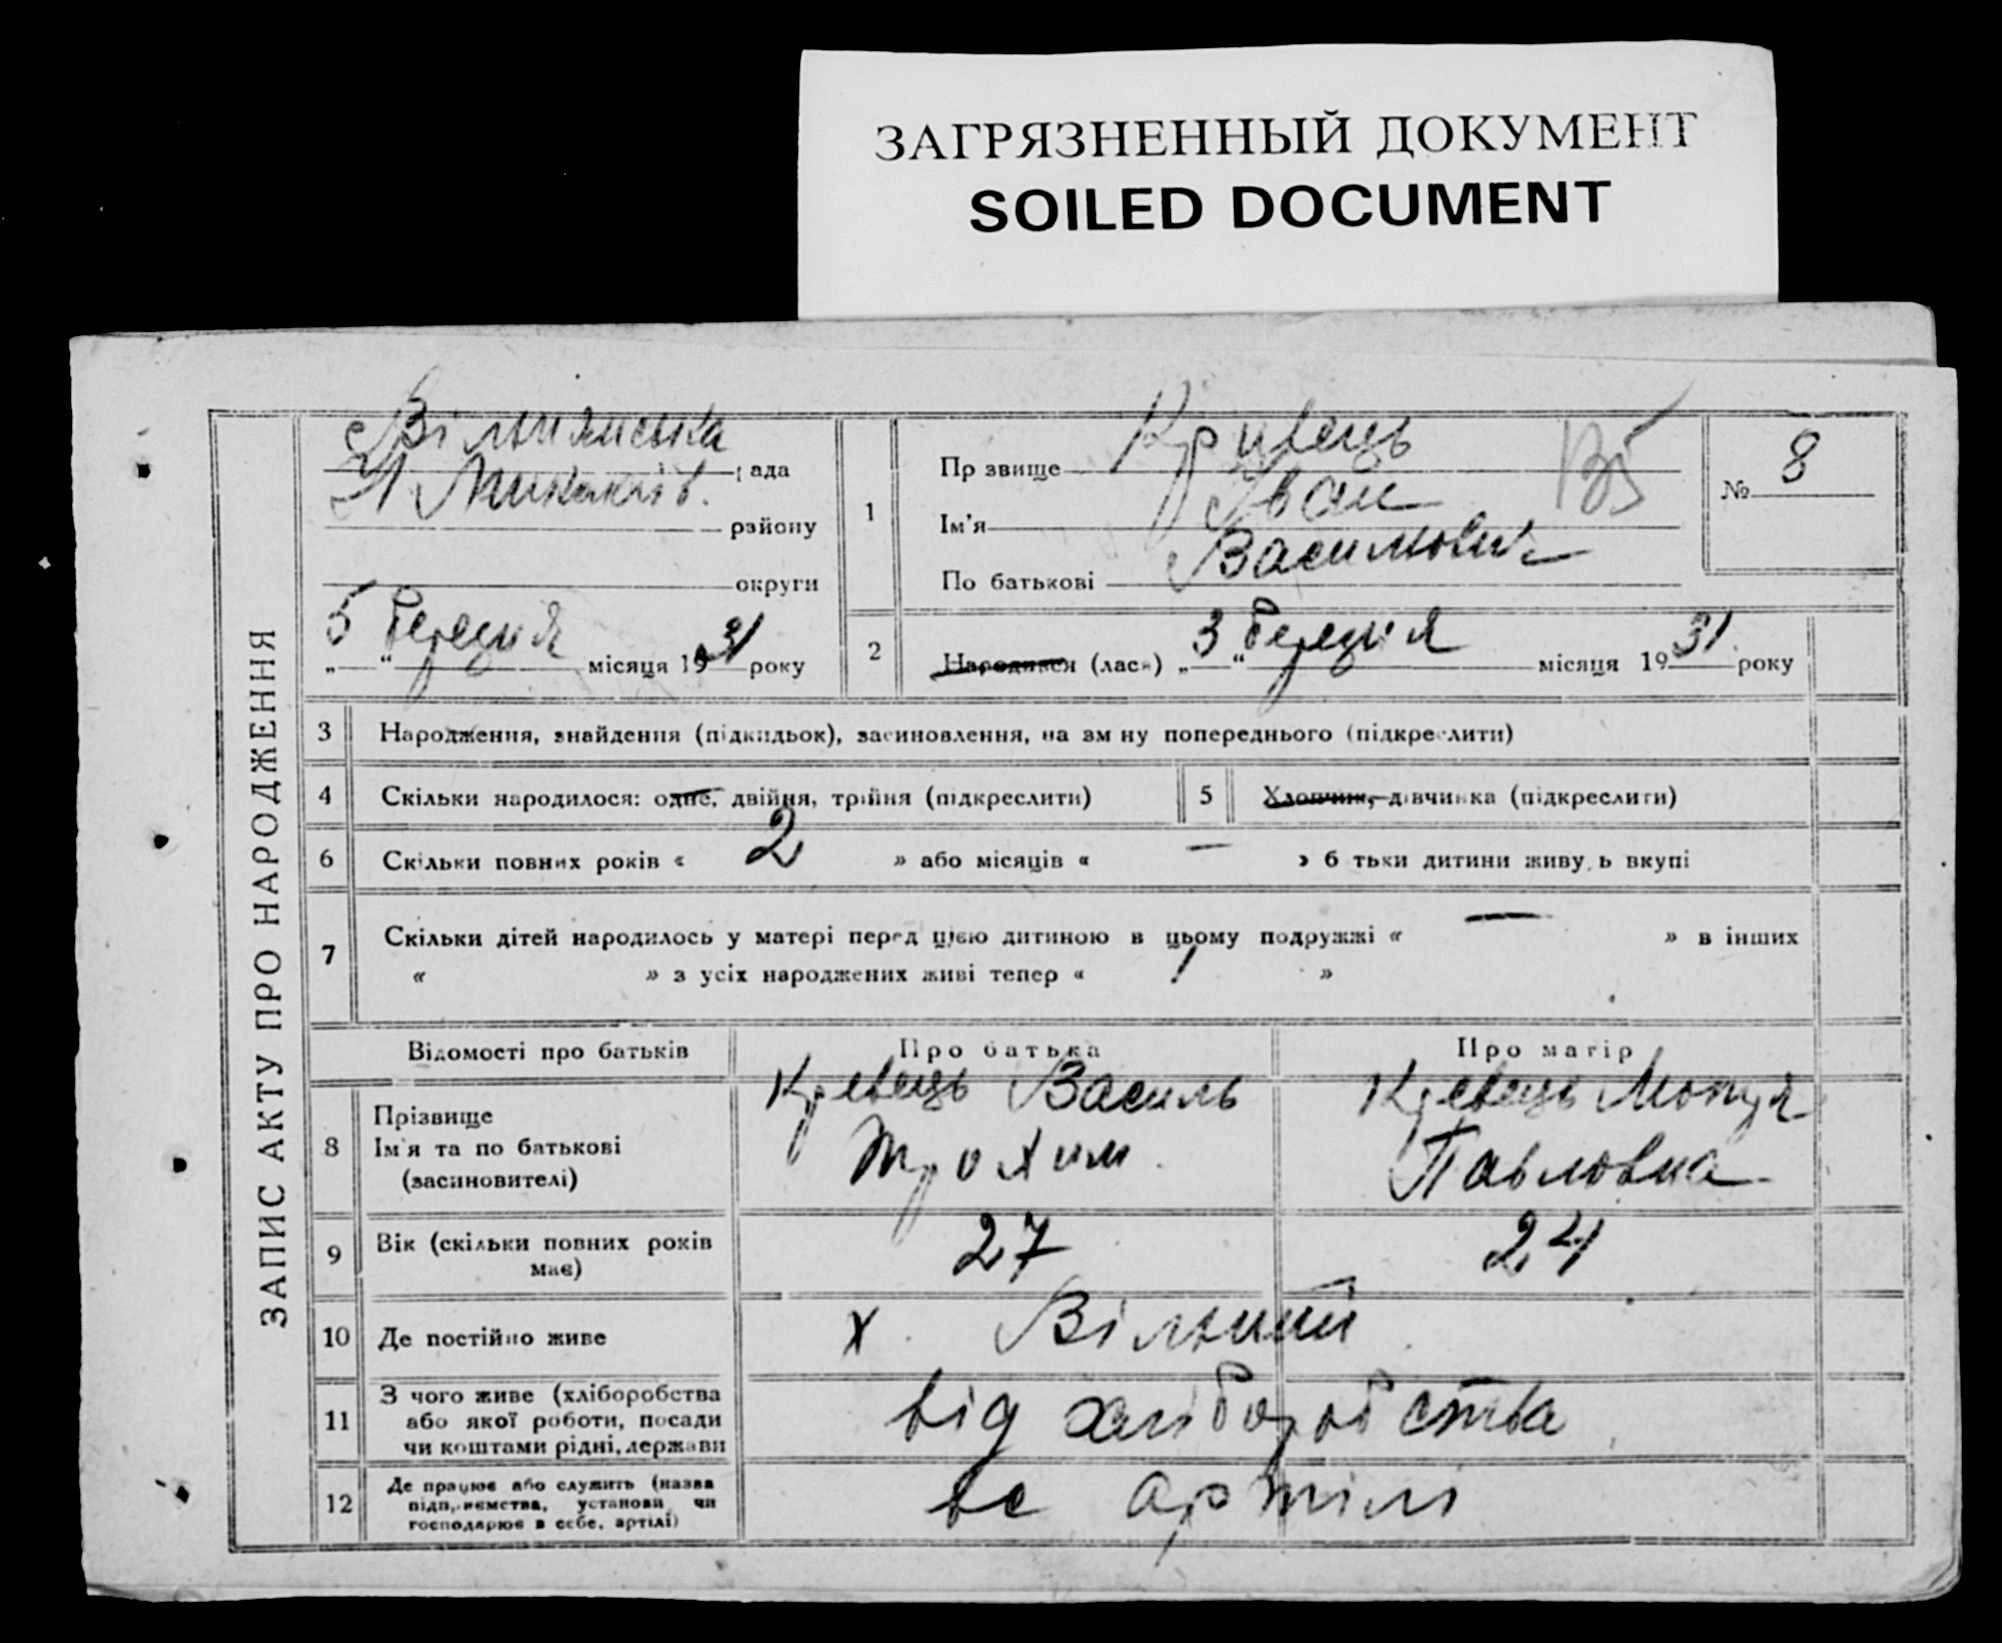 ЗАГРЯЗНЕННЫЙ ДОКУМЕНТ
SOILED DOCUMENT
ЗАПИС АКТУ ПРО НАРОДЖЕННЯ
рада
району
округи
5 березня місяця 1931 року
1
Прізвище Кривець
Ім'я Іван
По батькові Васильович
№ 8
2
Народився (лася) „3“ березня місяця 1931 року
3 Народження, знайдення (підкидьок), засиновлення, на зміну попереднього (підкреслити)
4 Скільки народилося: одне, двійня, трійня (підкреслити)
5 Хлопчик, дівчинка (підкреслити)
6 Скільки повних років « 2 » або місяців « — » батьки дитини живуть вкупі
7 Скільки дітей народилось у матері перед цією дитиною в цьому подружжі « — » в інших
« » з усіх народжених живі тепер « 1 »
Відомості про батьків
Про батька
Про матір
8 Прізвище
Ім'я та по батькові
(засиновителі)
Кревець Василь
Трохим
Кревець
Павловна
9 Вік (скільки повних років
має)
27
24
10 Де постійно живе
х. Вільний
11 З чого живе (хліборобства
або якої роботи, посади
чи коштами рідні, держави
від хліборобства
12 Де працює або служить (назва
підприємства, установи чи
господарює в себе, артілі)
ве артілі